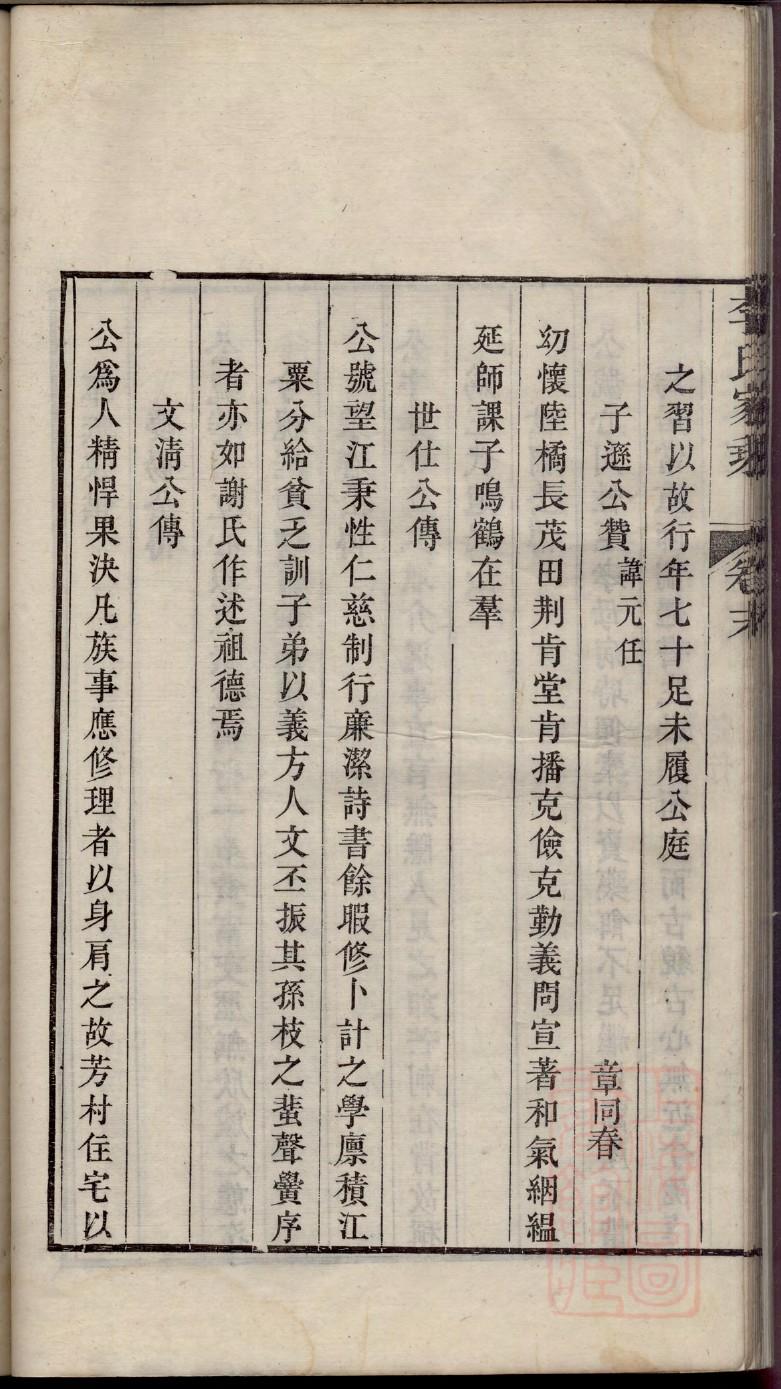 李氏家乘 卷末
之習以故行年七十足未履公庭
子遜公贊 諱元任 章同春
幼懷陸橘長茂田荆肯堂肯播克儉克勤義問宣著和氣絪縕
延師課子鳴鶴在羣
世仕公傳
公號望江秉性仁慈制行廉潔詩書餘暇修卜計之學廪積江
粟分給貧乏訓子弟以義方人文丕振其孫枝之蜚聲黌序
者亦如謝氏作述祖德焉
文清公傳
公爲人精悍果決凡族事應修理者以身肩之故芳村住宅以